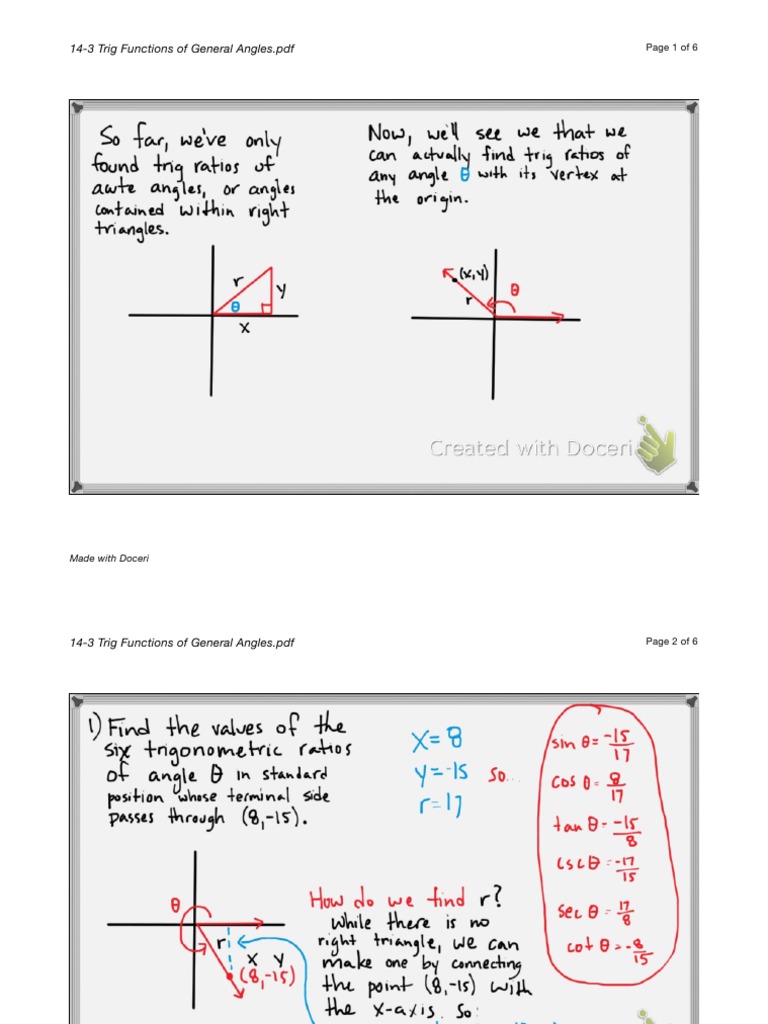 14-3 Trig Functions of General Angles.pdf
Page 1 of 6
So far, we've only
found trig ratios of
acute angles, or angles
contained within right
triangles.
r
y
θ
x
Now, we'll see we that we
can actually find trig ratios of
any angle θ with its vertex at
the origin.
(x,y)
θ
r
Created with Doceri
Made with Doceri
14-3 Trig Functions of General Angles.pdf
Page 2 of 6
1) Find the values of the
six trigonometric ratios
of angle θ in standard
position whose terminal side
passes through (8,-15).
x=8
y=-15 so...
r=17
sin θ = -15/17
cos θ = 8/17
tan θ = -15/8
csc θ = -17/15
sec θ = 17/8
cot θ = -8/15
θ
r
x y
(8,-15)
How do we find r?
While there is no
right triangle, we can
make one by connecting
the point (8,-15) with
the x-axis. So: